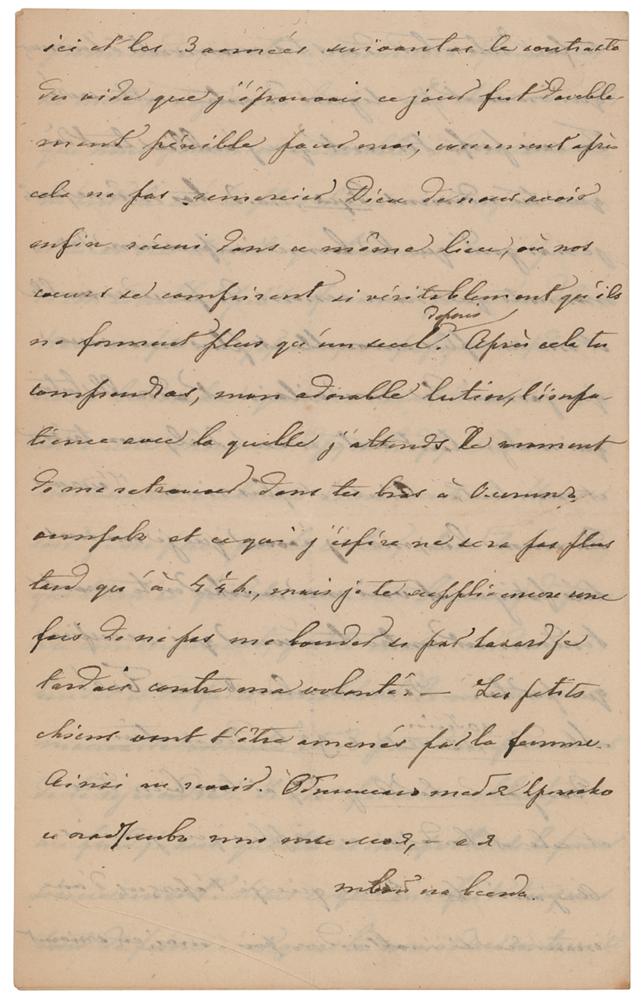 ici et les 3 années suivantes le contraste
du vide que j'éprouvais ce jour fut double
ment pénible pour moi, comment après
cela ne pas remercier Dieu de nous avoir
enfin réuni dans ce même lieu, où nos
cœurs se comprirent si véritablement qu'ils
ne forment depuis plus qu'un seul. Après cela tu
comprendras, mon adorable lutin, l'impa-
tience avec la quelle j'attends le moment
de me retrouver dans tes bras à
et ce qui j'espère ne sera pas plus
tard qu'à 4¼ h., mais je te supplie encore une
fois de ne pas me bouder si par hasard je
tardais contre ma volonté. — Les petits
chiens vont t'être amenés par la femme.
Ainsi au revoir. Обнимаю тебя крепко
и что ты моя, — а я
твой на всегда.